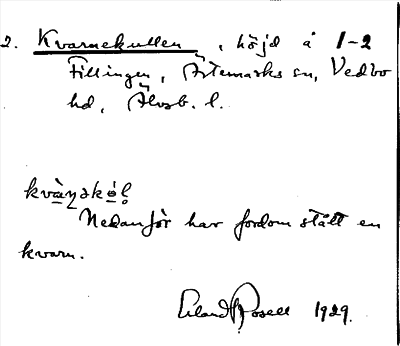 2. Kvarnekullen, höjd å 1-2
Fillingen, Ärtemarks sn, Vedbo
hd, Älvsb. l.
kvàn̥əkól̥
Nedanför har fordom stått en
kvarn.
Erland Rosell 1929.